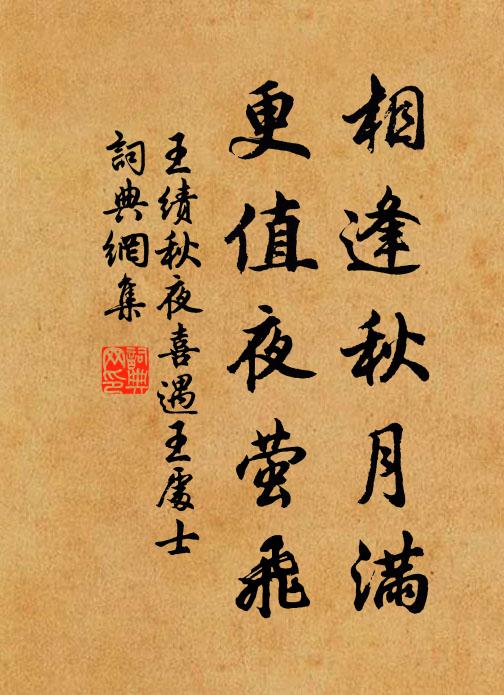 相逢秋月满
更值夜萤飛
王绩秋夜喜遇王處士
詞典網集
詞典
网印